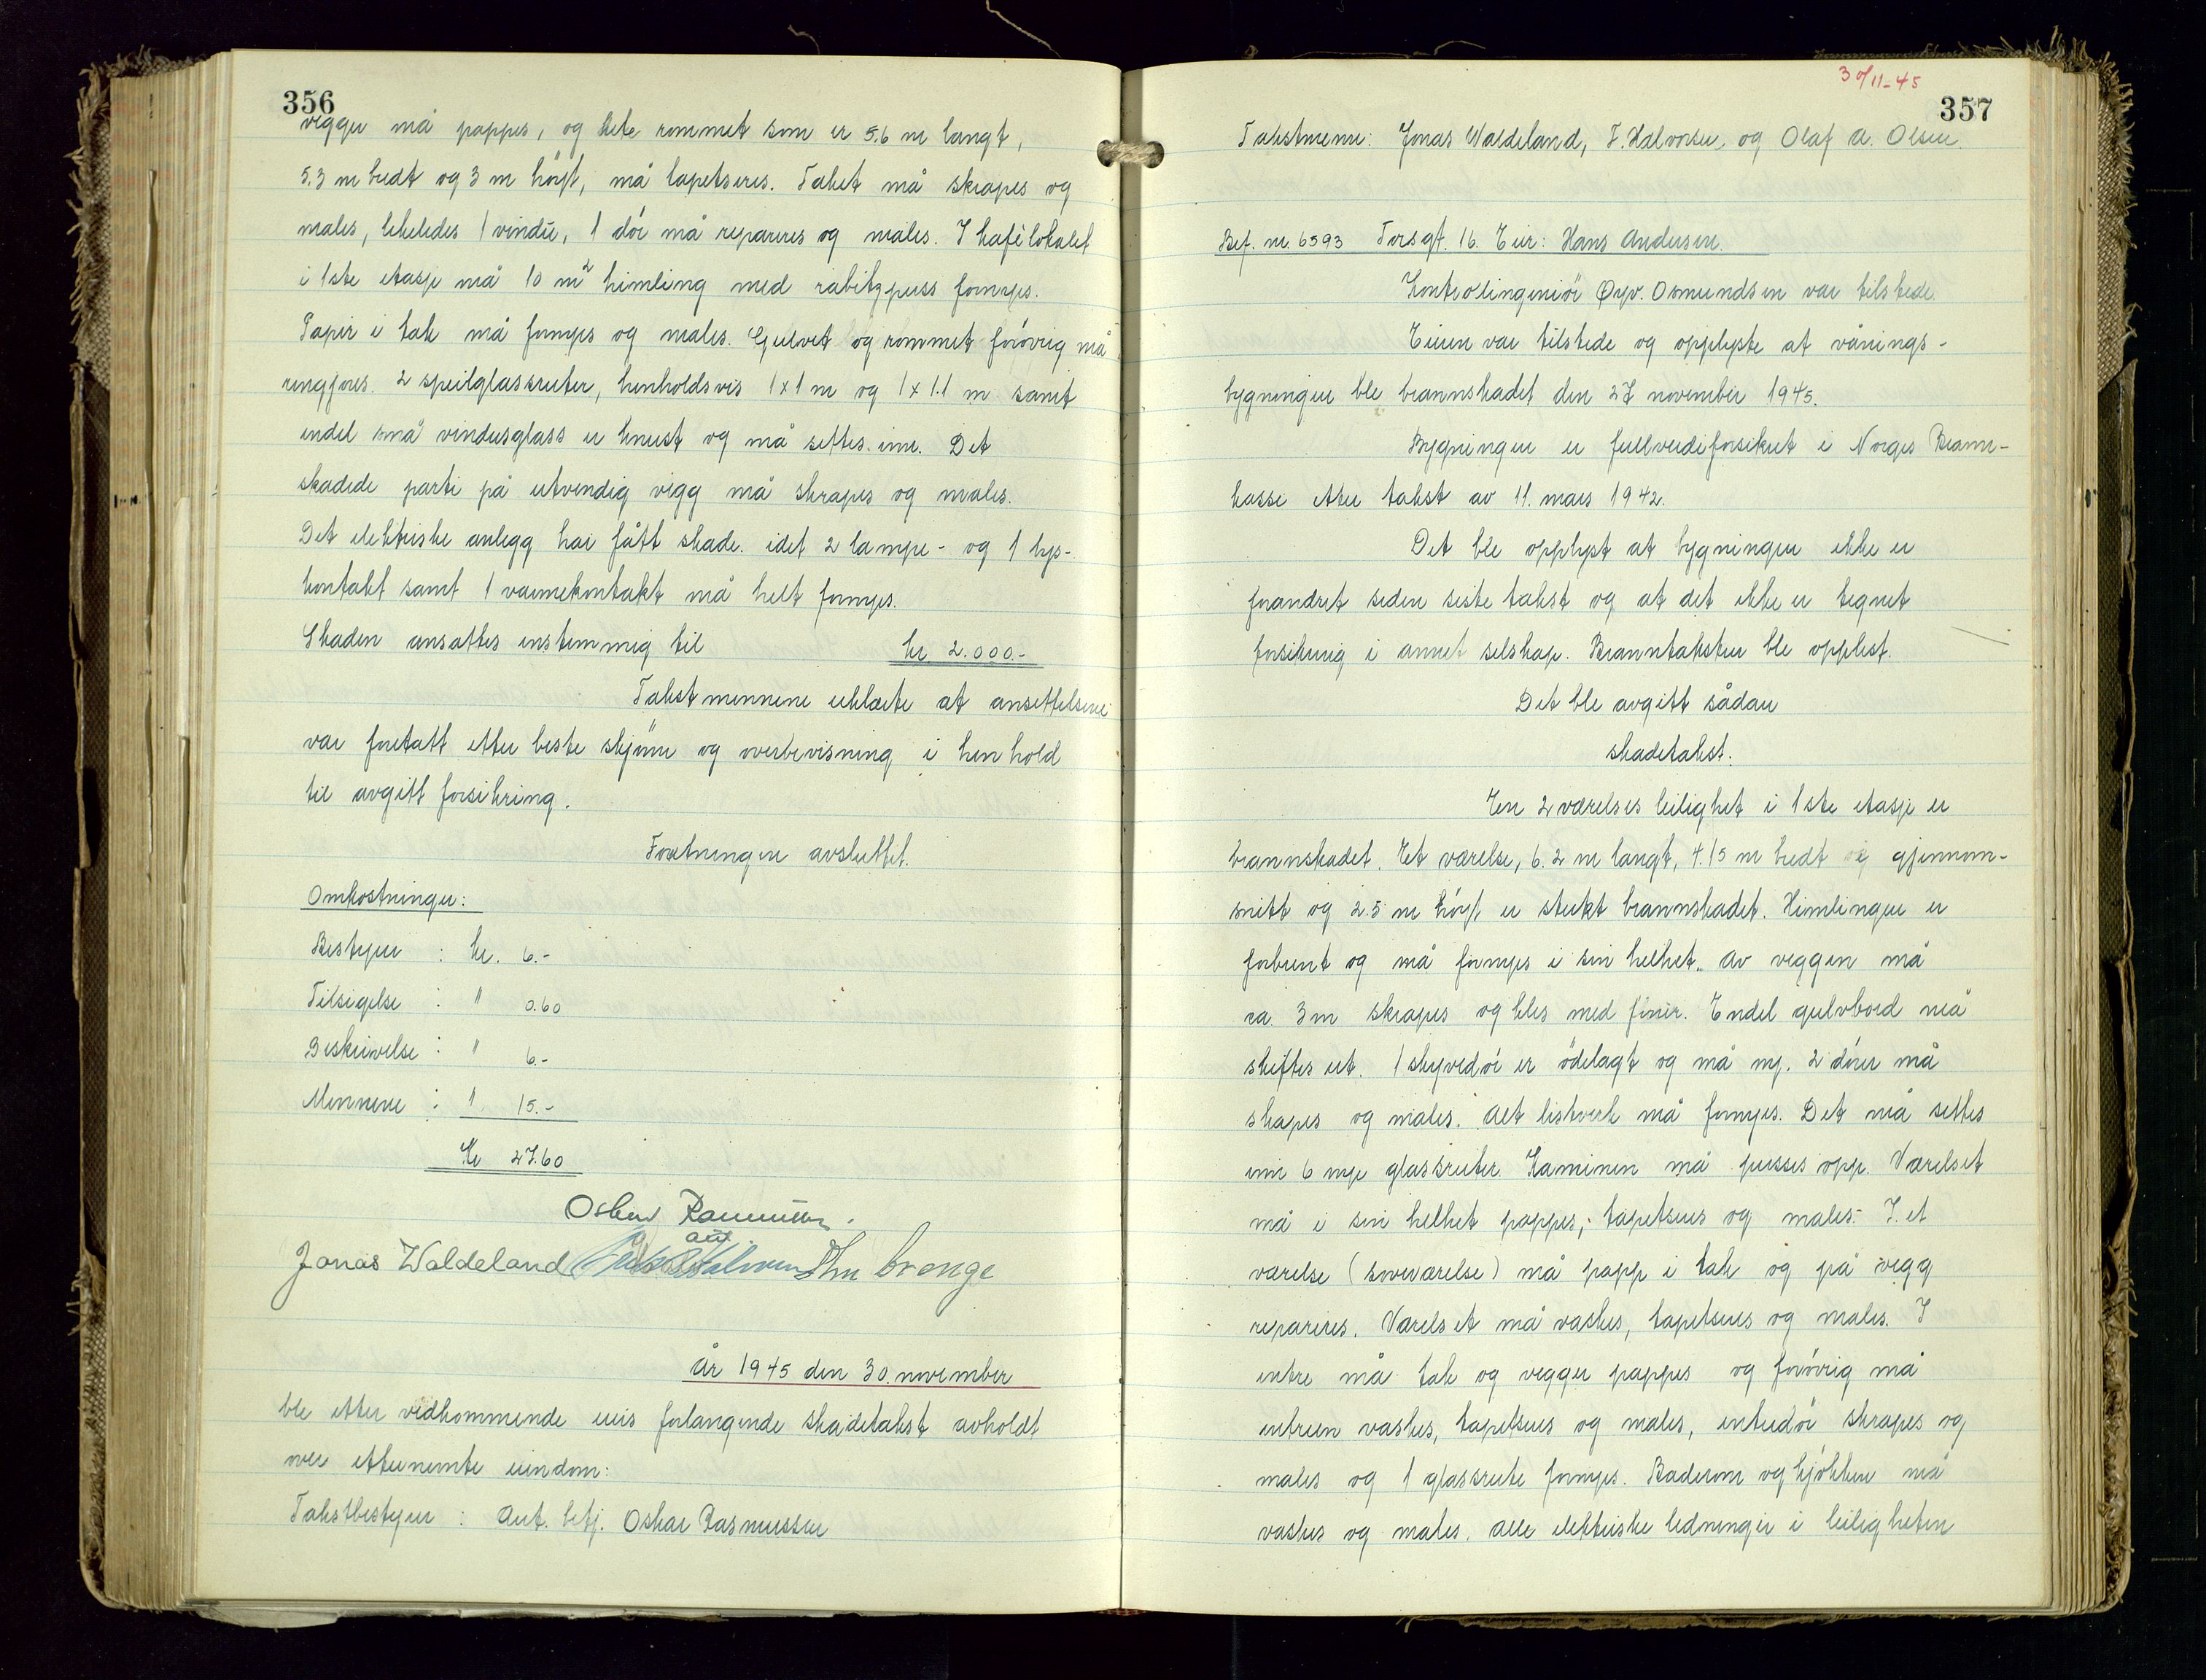 356
vegger må pappes, og hele rommet som er 5.6 m langt,
5.3 m bredt og 3 m höyt, må tapetseres. Taket må skrapes og
males, likeledes 1 vindu, 1 dör må repareres og males. I kafélokalet
i 1ste etasje må 10 m² himling med rabitzpuss fornyes.
Papir i tak må fornyes og males. Gulvet og rommet forövrig må
rengjøres. 2 speilglassruter, henholdsvis 1x1 m og 1x1.1 m samt
endel små vindusglass er knust og må settes inn. Det
skadede parti på utvendig vegg må skrapes og males.
Det elektriske anlegg har fått skade idet 2 lampe- og 1 lys-
kontakt samt 1 varmekontakt må helt fornyes.
Skaden ansattes enstemmig til kr. 2.000.-
Takstmennene erklærte at ansettelsene
var foretatt etter beste skjönn og overbevisning i henhold
til avgitt forsikring.
Forretningen avsluttet.
Omkostninger:
Bestyrer : kr. 6.-
Tilsigelse : " 0.60
Beskrivelse : " 6.-
Mennene : " 15.-
Kr 27.60
Oskar Rasmussen
aut
Jonas Waldeland Halvorsen Krenge
År 1945 den 30. november
ble etter vedkommende eiers forlangende skadetakst avholdt
over etternevnte eiendom:
Takstbestyrer : Aut. betj. Oskar Rasmussen
30/11-45
357
Takstmenn: Jonas Waldeland, F. Halvorsen, og Olaf A. Olsen.
Bef. nr. 6593 Torsgt. 16. Eier: Hans Andersen.
Kontrolingeniör Øyv. Osmundsen var tilstede.
Eieren var tilstede og opplyste at vånings-
bygningen ble brannskadet den 27 november 1945.
Bygningen er fullverdiforsikret i Norges Brann-
kasse etter takst av 11. mars 1942.
Det ble opplyst at bygningen ikke er
forandret siden siste takst og at det ikke er tegnet
forsikring i annet selskap. Branntaksten ble opplest.
Det ble avgitt sådan
skadetakst:
En 2 værelses leilighet i 1ste etasje er
brannskadet. Et værelse, 6.2 m langt, 4.15 m bredt i gjennom-
snitt og 2.5 m höyt er sterkt brannskadet. Himlingen er
forbrent og må fornyes i sin helhet. Av veggen må
ca. 3 m skrapes og kles med finér. Endel gulvbord må
skiftes ut. 1 skyvedör er ödelagt og må ny. 2 dörer må
skapes og males. Alt listverk må fornyes. Det må settes
inn 6 nye glassruter. Kaminen må pusses opp. Værelset
må i sin helhet pappes, tapetseres og males. I et
værelse (soveværelse) må papp i tak og på vegg
repareres. Værelset må vaskes, tapetseres og males. I
entre må tak og vegger pappes og forövrig må
entreen vaskes, tapetseres og males, entredör skrapes og
males og 1 glassrute fornyes. Baderom og kjökken må
vaskes og males. Alle elektriske ledninger i leiligheten